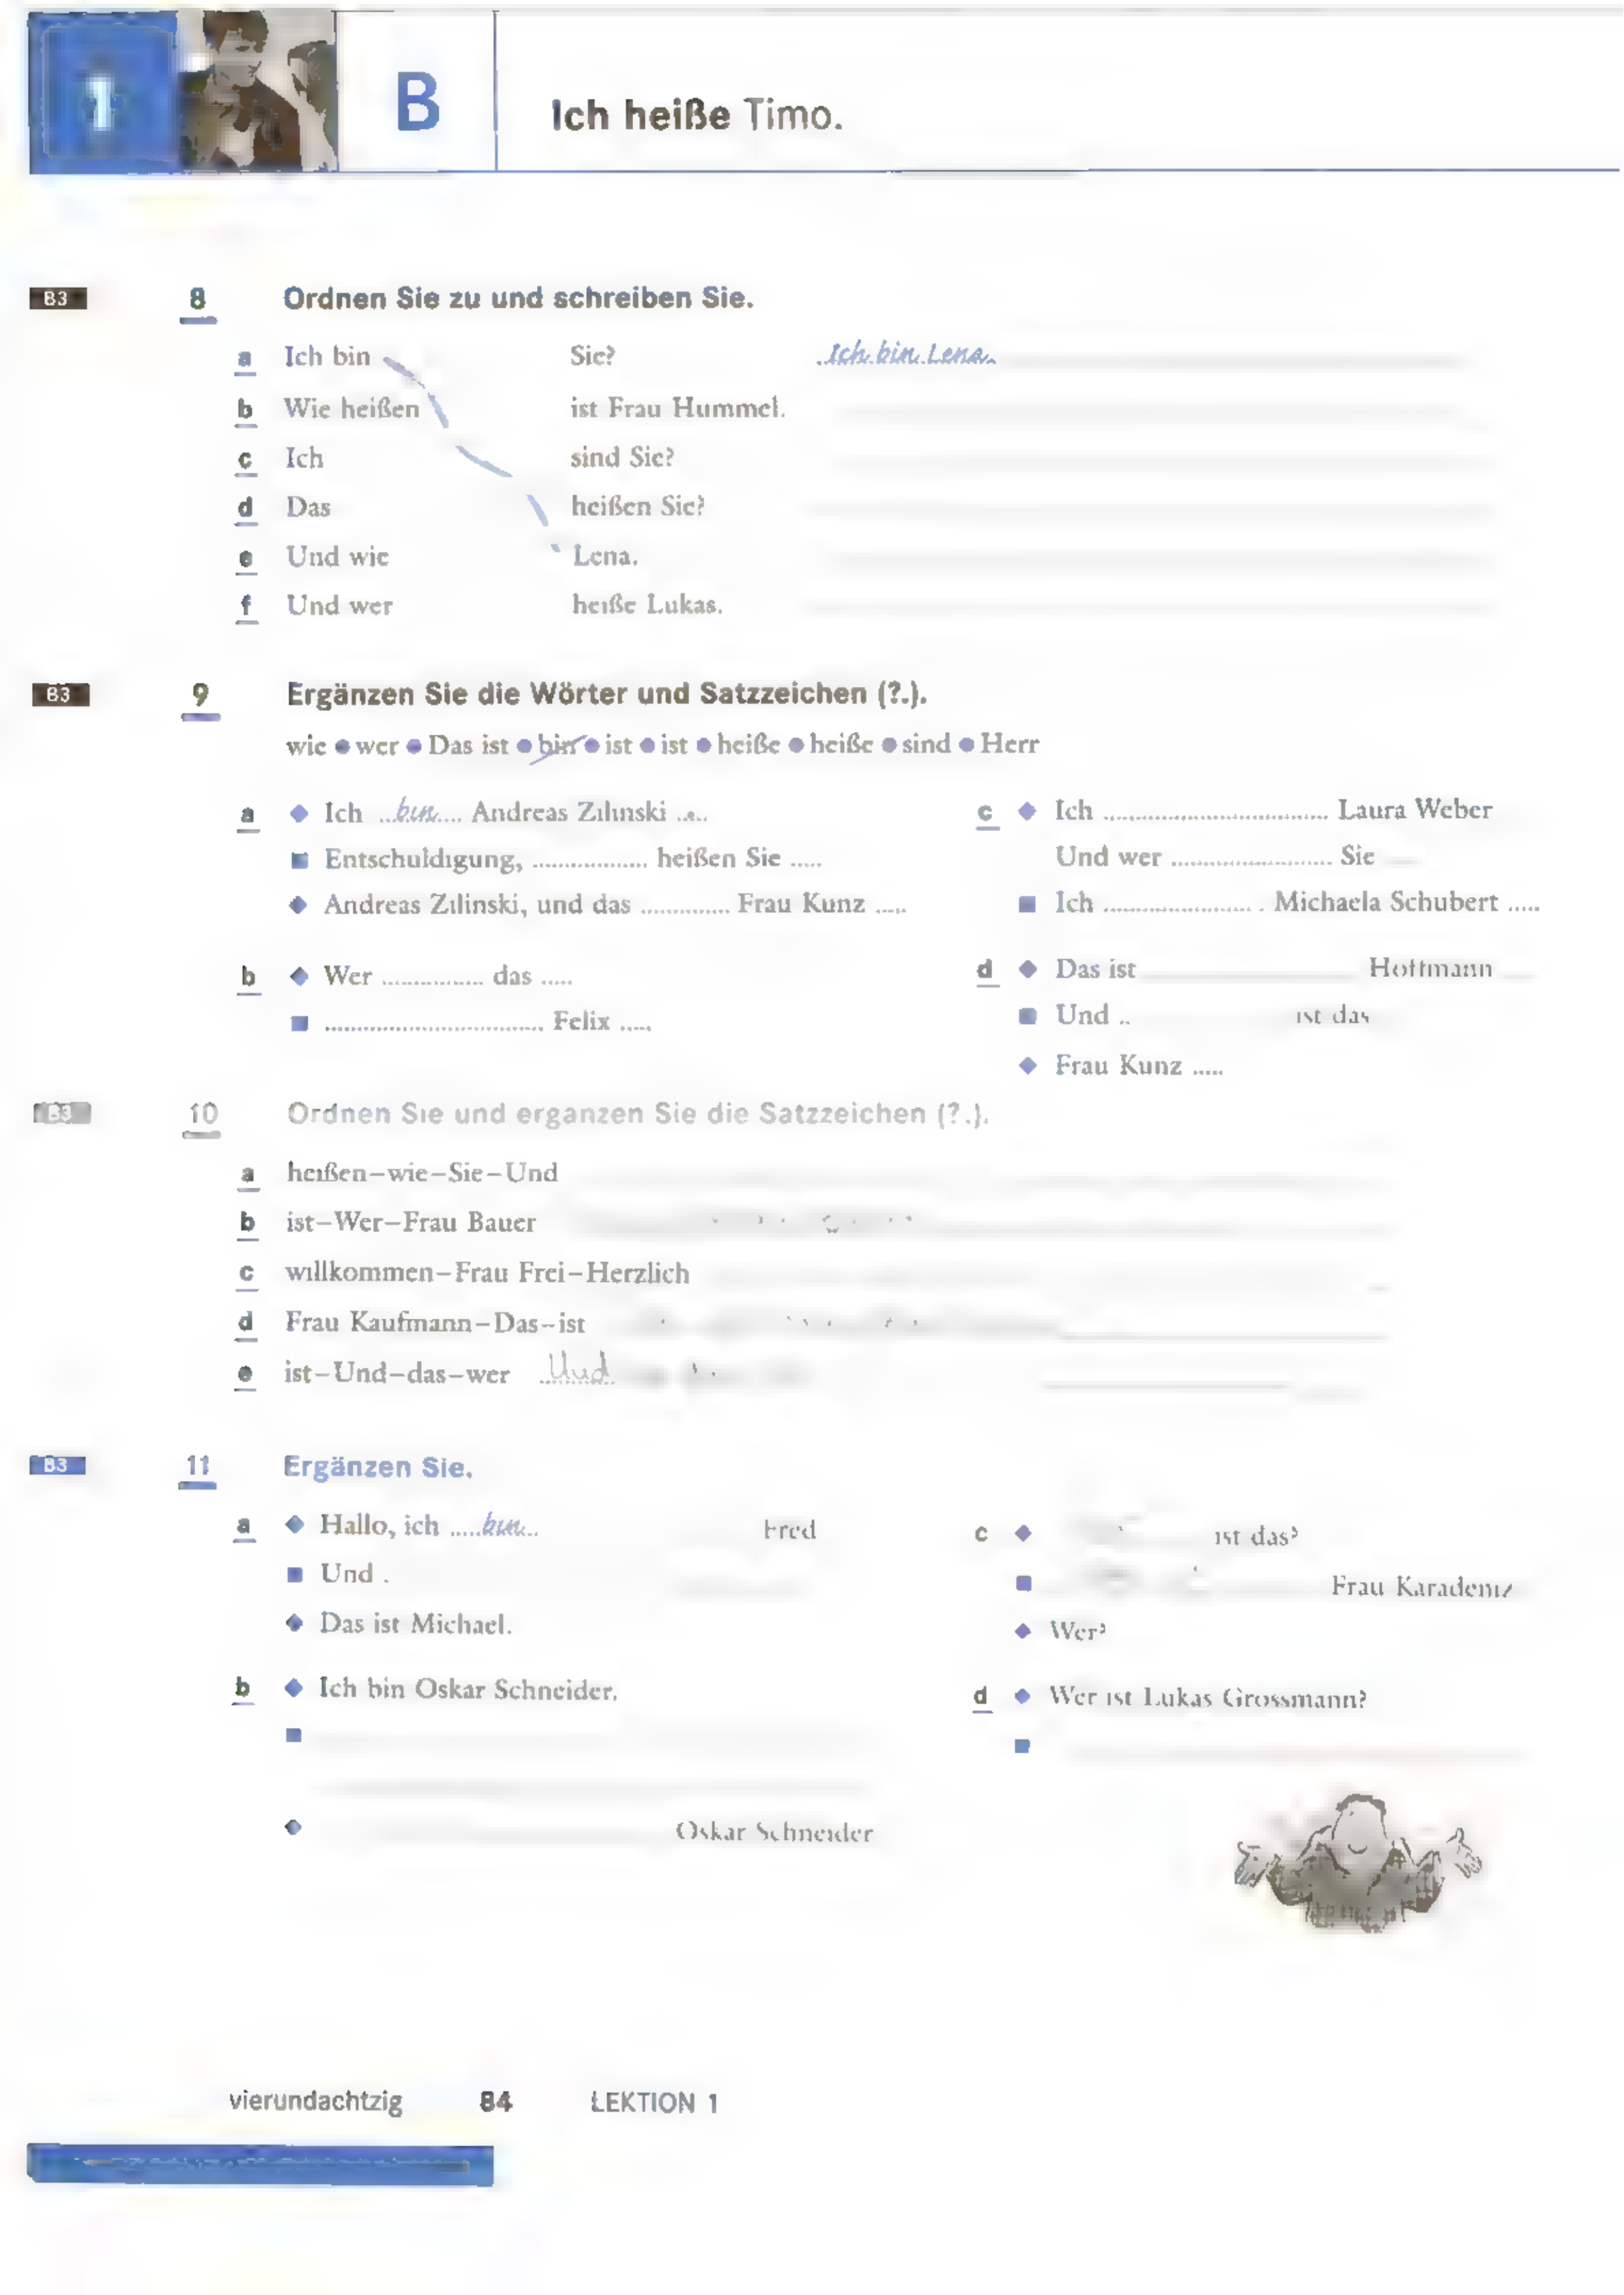 1 B Ich heiße Timo.
B3 8 Ordnen Sie zu und schreiben Sie.
a Ich bin Sie? Ich bin Lena.
b Wie heißen ist Frau Hummel.
c Ich sind Sie?
d Das heißen Sie?
e Und wie Lena.
f Und wer heiße Lukas.
B3 9 Ergänzen Sie die Wörter und Satzzeichen (?.).
wie ● wer ● Das ist ● bin ● ist ● ist ● heiße ● heiße ● sind ● Herr
a ◆ Ich ...bin.... Andreas Zilinski .....
■ Entschuldigung, .................. heißen Sie .....
◆ Andreas Zilinski, und das .............. Frau Kunz .....
b ◆ Wer ................ das .....
■ .................................. Felix .....
c ◆ Ich ................................... Laura Weber
Und wer ......................... Sie
■ Ich ....................... . Michaela Schubert .....
d ◆ Das ist Hoffmann
■ Und .. ist das
◆ Frau Kunz .....
B3 10 Ordnen Sie und erganzen Sie die Satzzeichen (?.).
a heißen–wie–Sie–Und
b ist–Wer–Frau Bauer
c willkommen–Frau Frei–Herzlich
d Frau Kaufmann–Das–ist
e ist–Und–das–wer Und
B3 11 Ergänzen Sie.
a ◆ Hallo, ich .....bin... Fred
■ Und .
◆ Das ist Michael.
b ◆ Ich bin Oskar Schneider.
■
◆ Oskar Schneider
c ◆ ist das?
■ Frau Karadeniz
◆ Wer?
d ◆ Wer ist Lukas Grossmann?
■
vierundachtzig 84 LEKTION 1